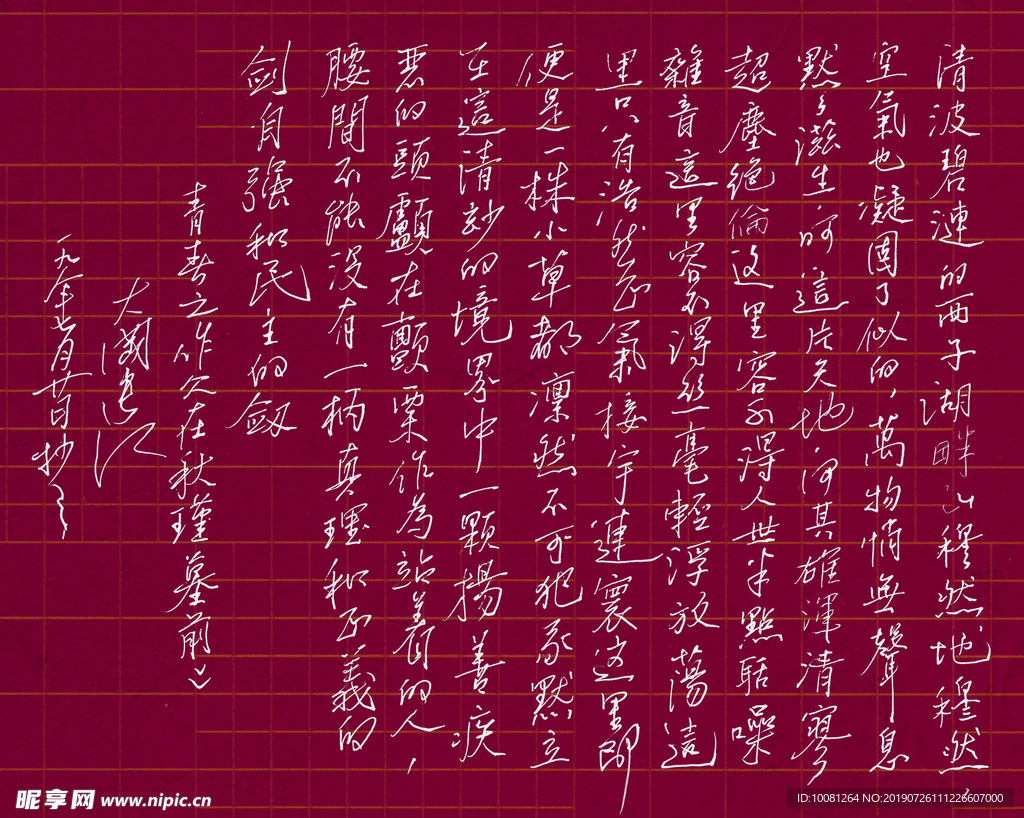 清波碧漣的西子湖畔山穆然地穆然，
空氣也凝固了似的，萬物悄無聲息
默默滋生。呵這片天地何其雄渾清寥
超塵絕倫这里容不得人世半點聒噪
雜音這里容不得絲毫輕浮放蕩這
里只有浩然正氣接宇連寰这里即
便是一株小草都凜然不可犯承默立
在這清妙的境界中一顆揚善疾
惡的頭顱在顫栗作為站着的人，
腰間不能沒有一柄真理和正義的
劍自強和民主的劍
青春之作欠在秋瑾墓前
大國
一九年七月廿日抄
昵享网 www.nipic.cn
ID:10081264 NO:20190726111226607000